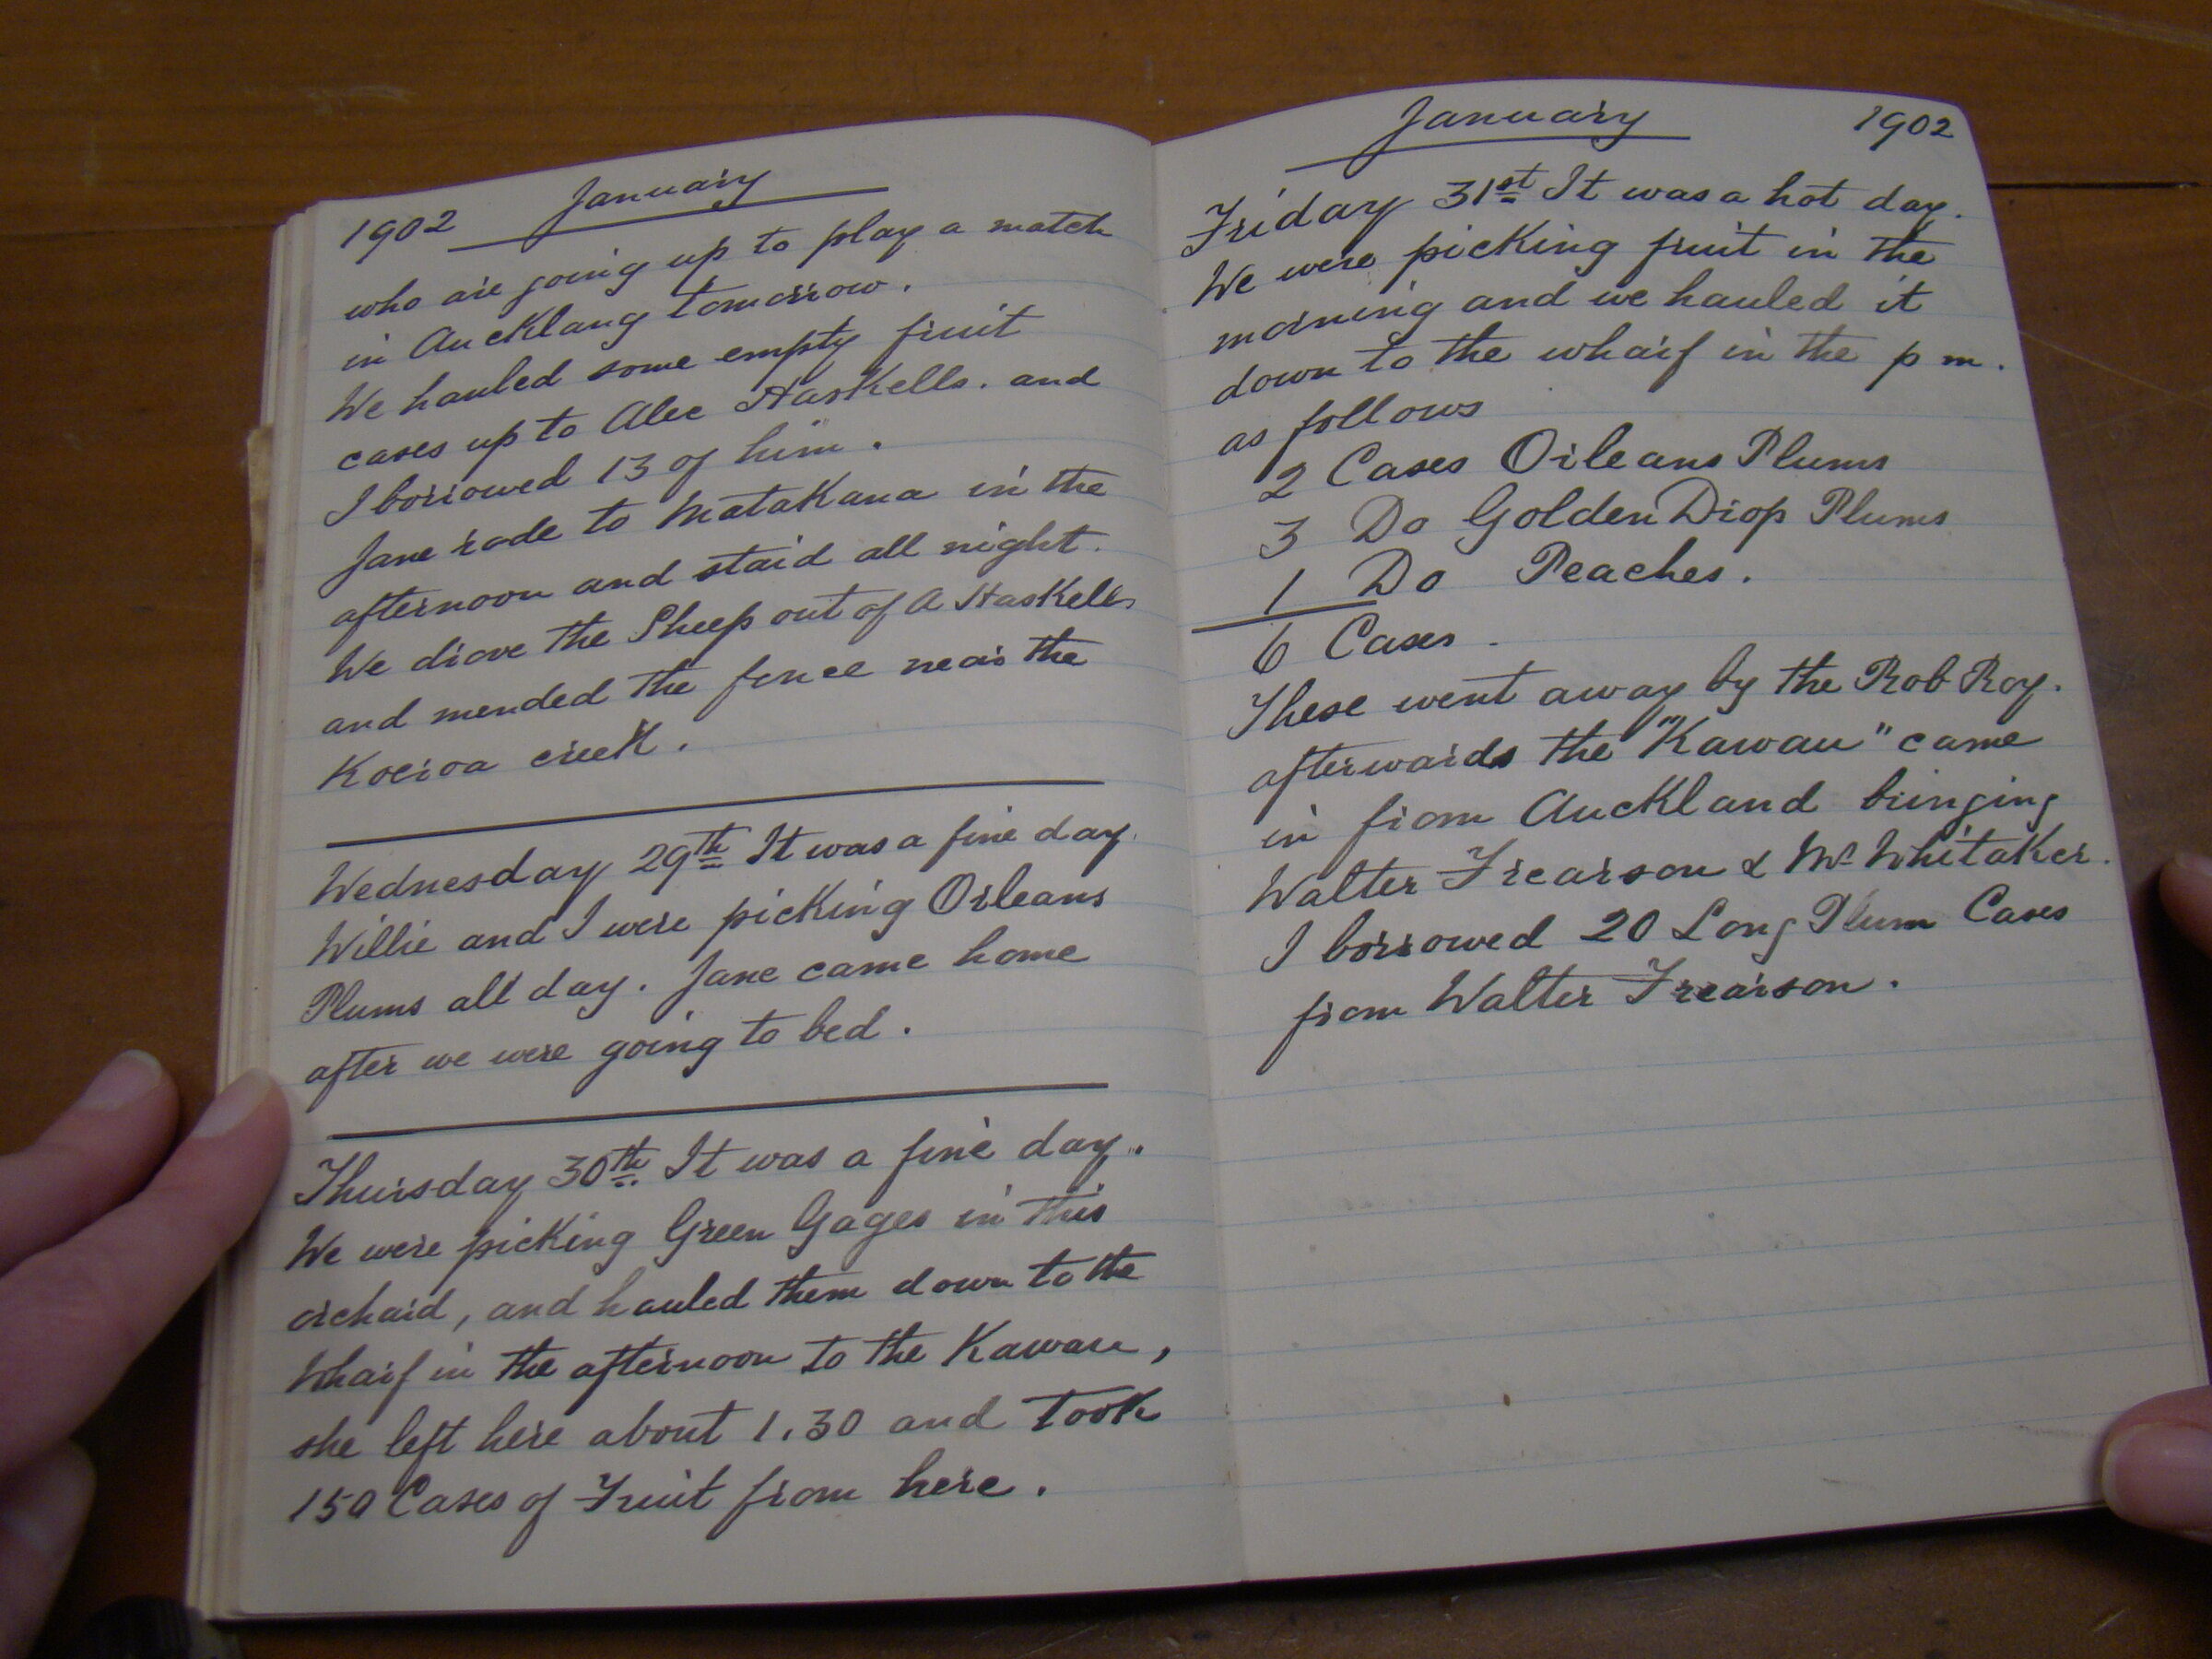 1902 January
who are going up to play a match
in Aucklang tomorrow.
We hauled some empty fruit
cases up to Alec Haskells. and
I borrowed 13 of him.
Jane rode to Matakana in the
afternoon and staid all night.
We drove the Sheep out of A Haskells
and mended the fence near the
creek.
Wednesday 29th It was a fine day.
Willie and I were picking Orleans
Plums all day. Jane came home
after we were going to bed.
Thursday 30th. It was a fine day.
We were picking Green Gages in this
orchard, and hauled them down to the
Wharf in the afternoon to the Kawau,
she left here about 1.30 and took
150 Cases of Fruit from here.
January 1902
Friday 31st It was a hot day.
We were picking fruit in the
morning and we hauled it
down to the wharf in the p m.
as follows
2 Cases Orleans Plums
3 Do Golden Drop Plums
1 Do Peaches.
6 Cases.
These went away by the Rob Roy.
afterwards the "Kawau" came
in from Auckland bringing
Walter Frearson & Mr Whitaker.
I borrowed 20 Long Plum Cases
from Walter Frearson.